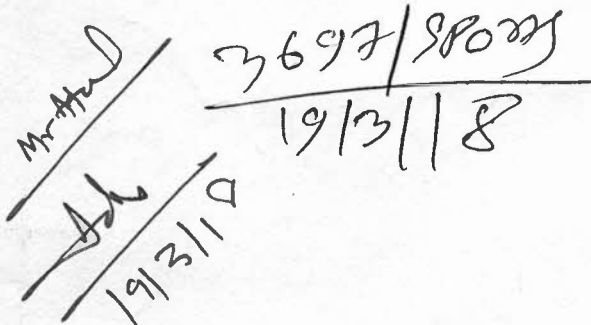 3697/Sports
19/3/18
Mr Atul
19/3/18